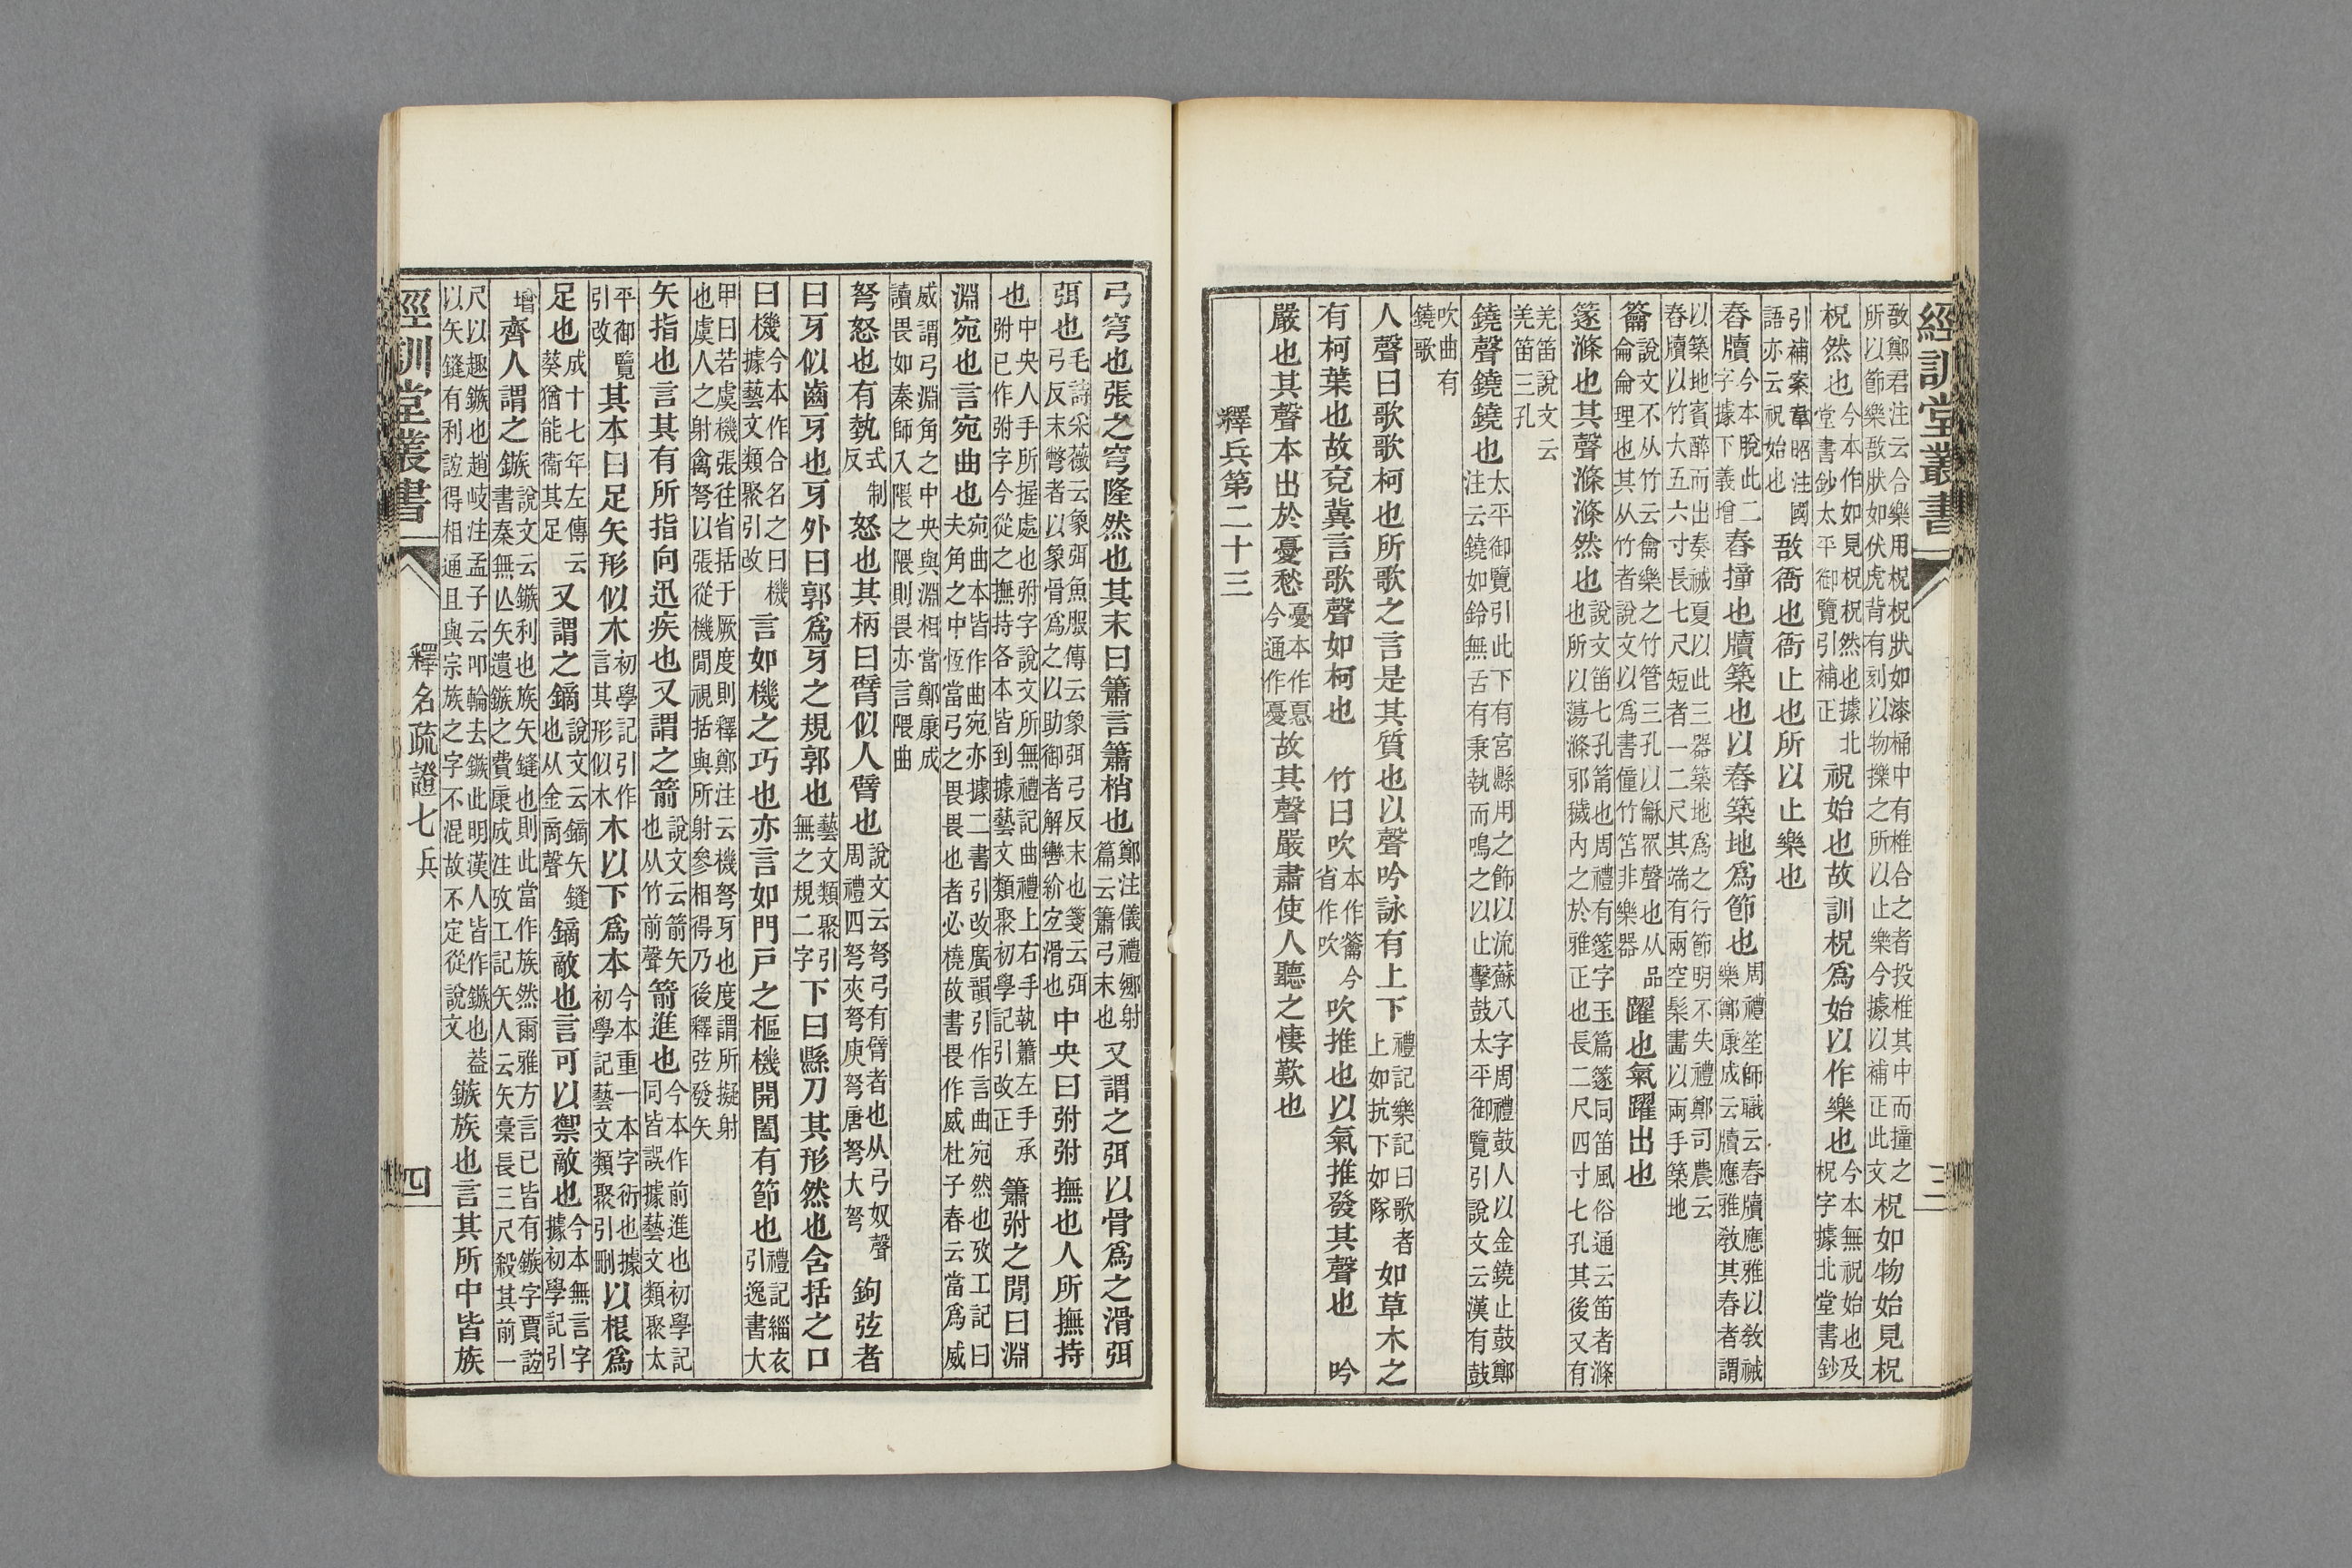 經訓堂叢書
三
敔鄭君注云合樂用柷柷狀如漆桶中有椎合之者投椎其中而撞之
所以節樂敔狀如伏虎背有刻以物擽之所以止樂今據以補正此文
柷如物始見柷
柷然也
今本作如見柷柷然也據北
堂書鈔太平御覽引補正
祝始也故訓柷爲始以作樂也
今本無祝始也及
柷字據北堂書鈔
引補案韋昭注國
語亦云祝始也
敔衙也衙止也所以止樂也
舂牘
今本脫此二
字據下義增
舂撞也牘築也以舂築地爲節也
周禮笙師職云舂牘應雅以敎祴
樂鄭康成云牘應雅敎其舂者謂
以築地賓醉而出奏祴夏以此三器築地爲之行節明不失禮鄭司農云
舂牘以竹大五六寸長七尺短者一二尺其端有兩空髹畫以兩手築地
籥
說文不从竹云龠樂之竹管三孔以龢眾聲也从品
侖侖理也其从竹者說文以爲書僮竹笘非樂器
躍也氣躍出也
篴滌也其聲滌滌然也
說文笛七孔筩也周禮有篴字玉篇篴同笛風俗通云笛者滌
也所以蕩滌邪穢內之於雅正也長二尺四寸七孔其後又有
羌笛說文云
羌笛三孔
鐃聲鐃鐃也
太平御覽引此下有宮縣用之飾以流蘇八字周禮鼓人以金鐃止鼓鄭
注云鐃如鈴無舌有秉執而鳴之以止擊鼓太平御覽引說文云漢有鼓
吹曲有
鐃歌
人聲曰歌歌柯也所歌之言是其質也以聲吟詠有上下
禮記樂記曰歌者
上如抗下如隊
如草木之
有柯葉也故兗冀言歌聲如柯也　竹曰吹
本作籥今
省作吹
吹推也以氣推發其聲也　吟
嚴也其聲本出於憂愁
憂本作惪
今通作憂
故其聲嚴肅使人聽之悽歎也
釋兵第二十三
弓穹也張之穹隆然也其末曰簫言簫梢也
鄭注儀禮鄉射
篇云簫弓末也
又謂之弭以骨爲之滑弭
弭也
毛詩采薇云象弭魚服傳云象弭弓反末也箋云弭
弓反末彆者以象骨爲之以助御者解轡紛宜滑也
中央曰弣弣撫也人所撫持
也
中央人手所握處也弣字說文所無禮記曲禮上右手執簫左手承
弣已作弣字今從之撫持各本皆到據藝文類聚初學記引改正
簫弣之閒曰淵
淵宛也言宛曲也
宛曲本皆作曲宛亦據二書引改廣韻引作言曲宛然也攷工記曰
夫角之中恆當弓之畏畏也者必橈故書畏作威杜子春云當爲威
威謂弓淵角之中央與淵相當鄭康成
讀畏如秦師入隈之隈則畏亦言隈曲
弩怒也有埶
式制
反
怒也其柄曰臂似人臂也
說文云弩弓有臂者也从弓奴聲
周禮四弩夾弩庾弩唐弩大弩
鉤弦者
曰牙似齒牙也牙外曰郭爲牙之規郭也
藝文類聚引
無之規二字
下曰縣刀其形然也含括之口
曰機
今本作合名之曰機
據藝文類聚引改
言如機之巧也亦言如門戸之樞機開闔有節也
禮記緇衣
引逸書大
甲曰若虞機張往省括于厥度則釋鄭注云機弩牙也度謂所擬射
也虞人之射禽弩以張從機閒視括與所射參相得乃後釋弦發矢
矢指也言其有所指向迅疾也又謂之箭
說文云箭矢
也从竹前聲
箭進也
今本作前進也初學記
同皆誤據藝文類聚太
平御覽
引改
其本曰足矢形似木
初學記引作
言其形似木
木以下爲本
今本重一本字衍也據
初學記藝文類聚引刪
以根爲
足也
成十七年左傳云
葵猶能衞其足
又謂之鏑
說文云鏑矢鏠
也从金啇聲
鏑敵也言可以禦敵也
今本無言字
據初學記引
增
齊人謂之鏃
說文云鏃利也族矢鏠也則此當作族然爾雅方言已皆有鏃字賈誼
書秦無亾矢遺鏃之費康成注攷工記矢人云矢槀長三尺殺其前一
尺以趣鏃也趙岐注孟子云叩輪去鏃此明漢人皆作鏃也葢
以矢鏠有利誼得相通且與宗族之字不混故不定從說文
鏃族也言其所中皆族
經訓堂叢書
釋名疏證七
兵
四